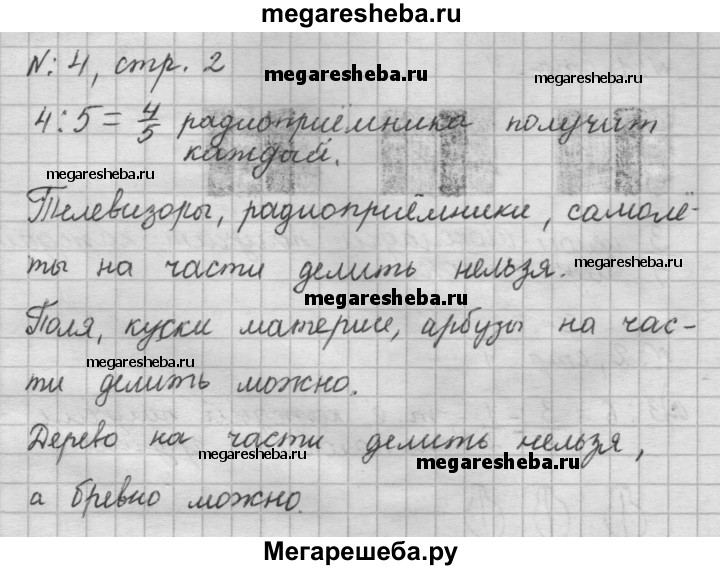 megaresheba.ru
№ 4, стр. 2
megaresheba.ru
4 : 5 = 4/5 радиоприёмника получит
каждый.
megaresheba.ru
megaresheba.ru
megaresheba.ru
Телевизоры, радиоприёмники, самолё-
ты на части делить нельзя.
megaresheba.ru
megaresheba.ru
Поля, куски материи, арбузы на час-
megaresheba.ru
ти делить можно.
Дерево на части делить нельзя,
megaresheba.ru
megaresheba.ru
а бревно можно.
Мегарешеба.ру